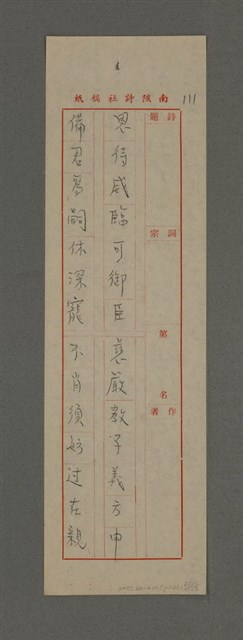 111
南陔詩社稿紙
詩題
詞宗
第
名
作者
恩待威臨可御臣
裏嚴教子義方申
備君為嗣休深寵
不肖須紓过在親